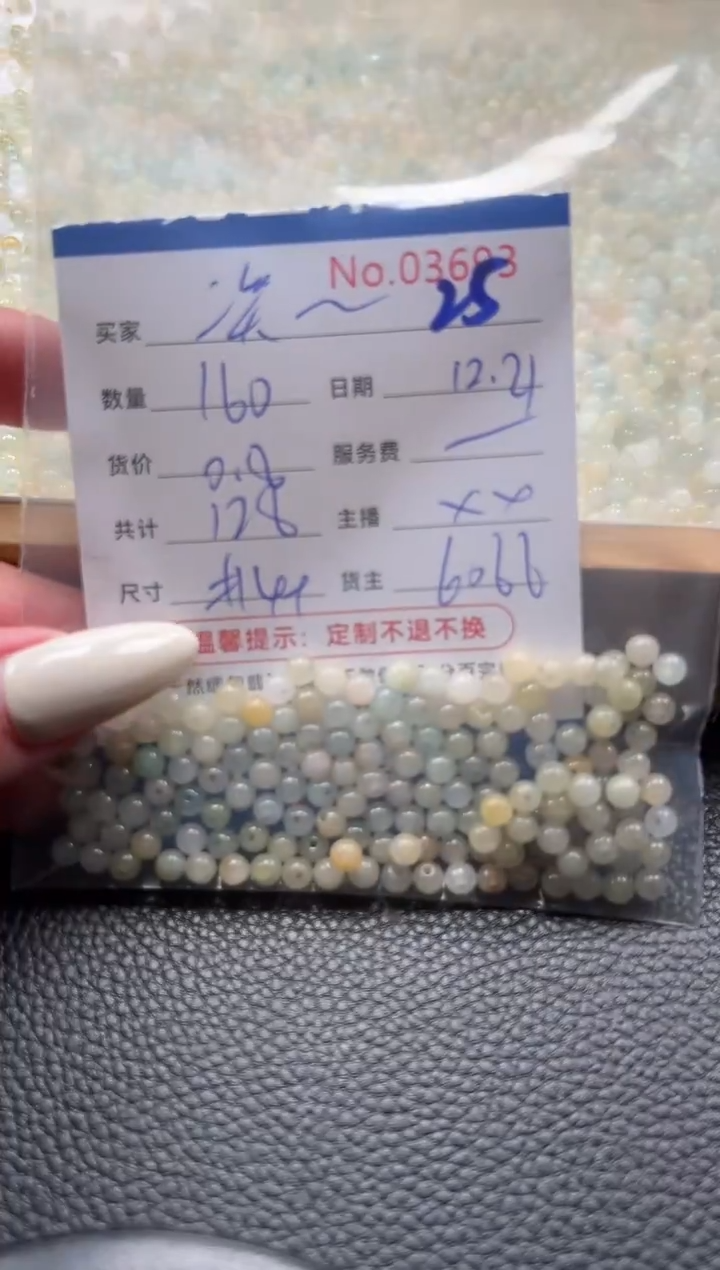 No.03693
买家 25
数量 160 日期 12.21
货价 0.8 服务费
共计 128 主播 xx
尺寸 货主 6066
温馨提示：定制不退不换